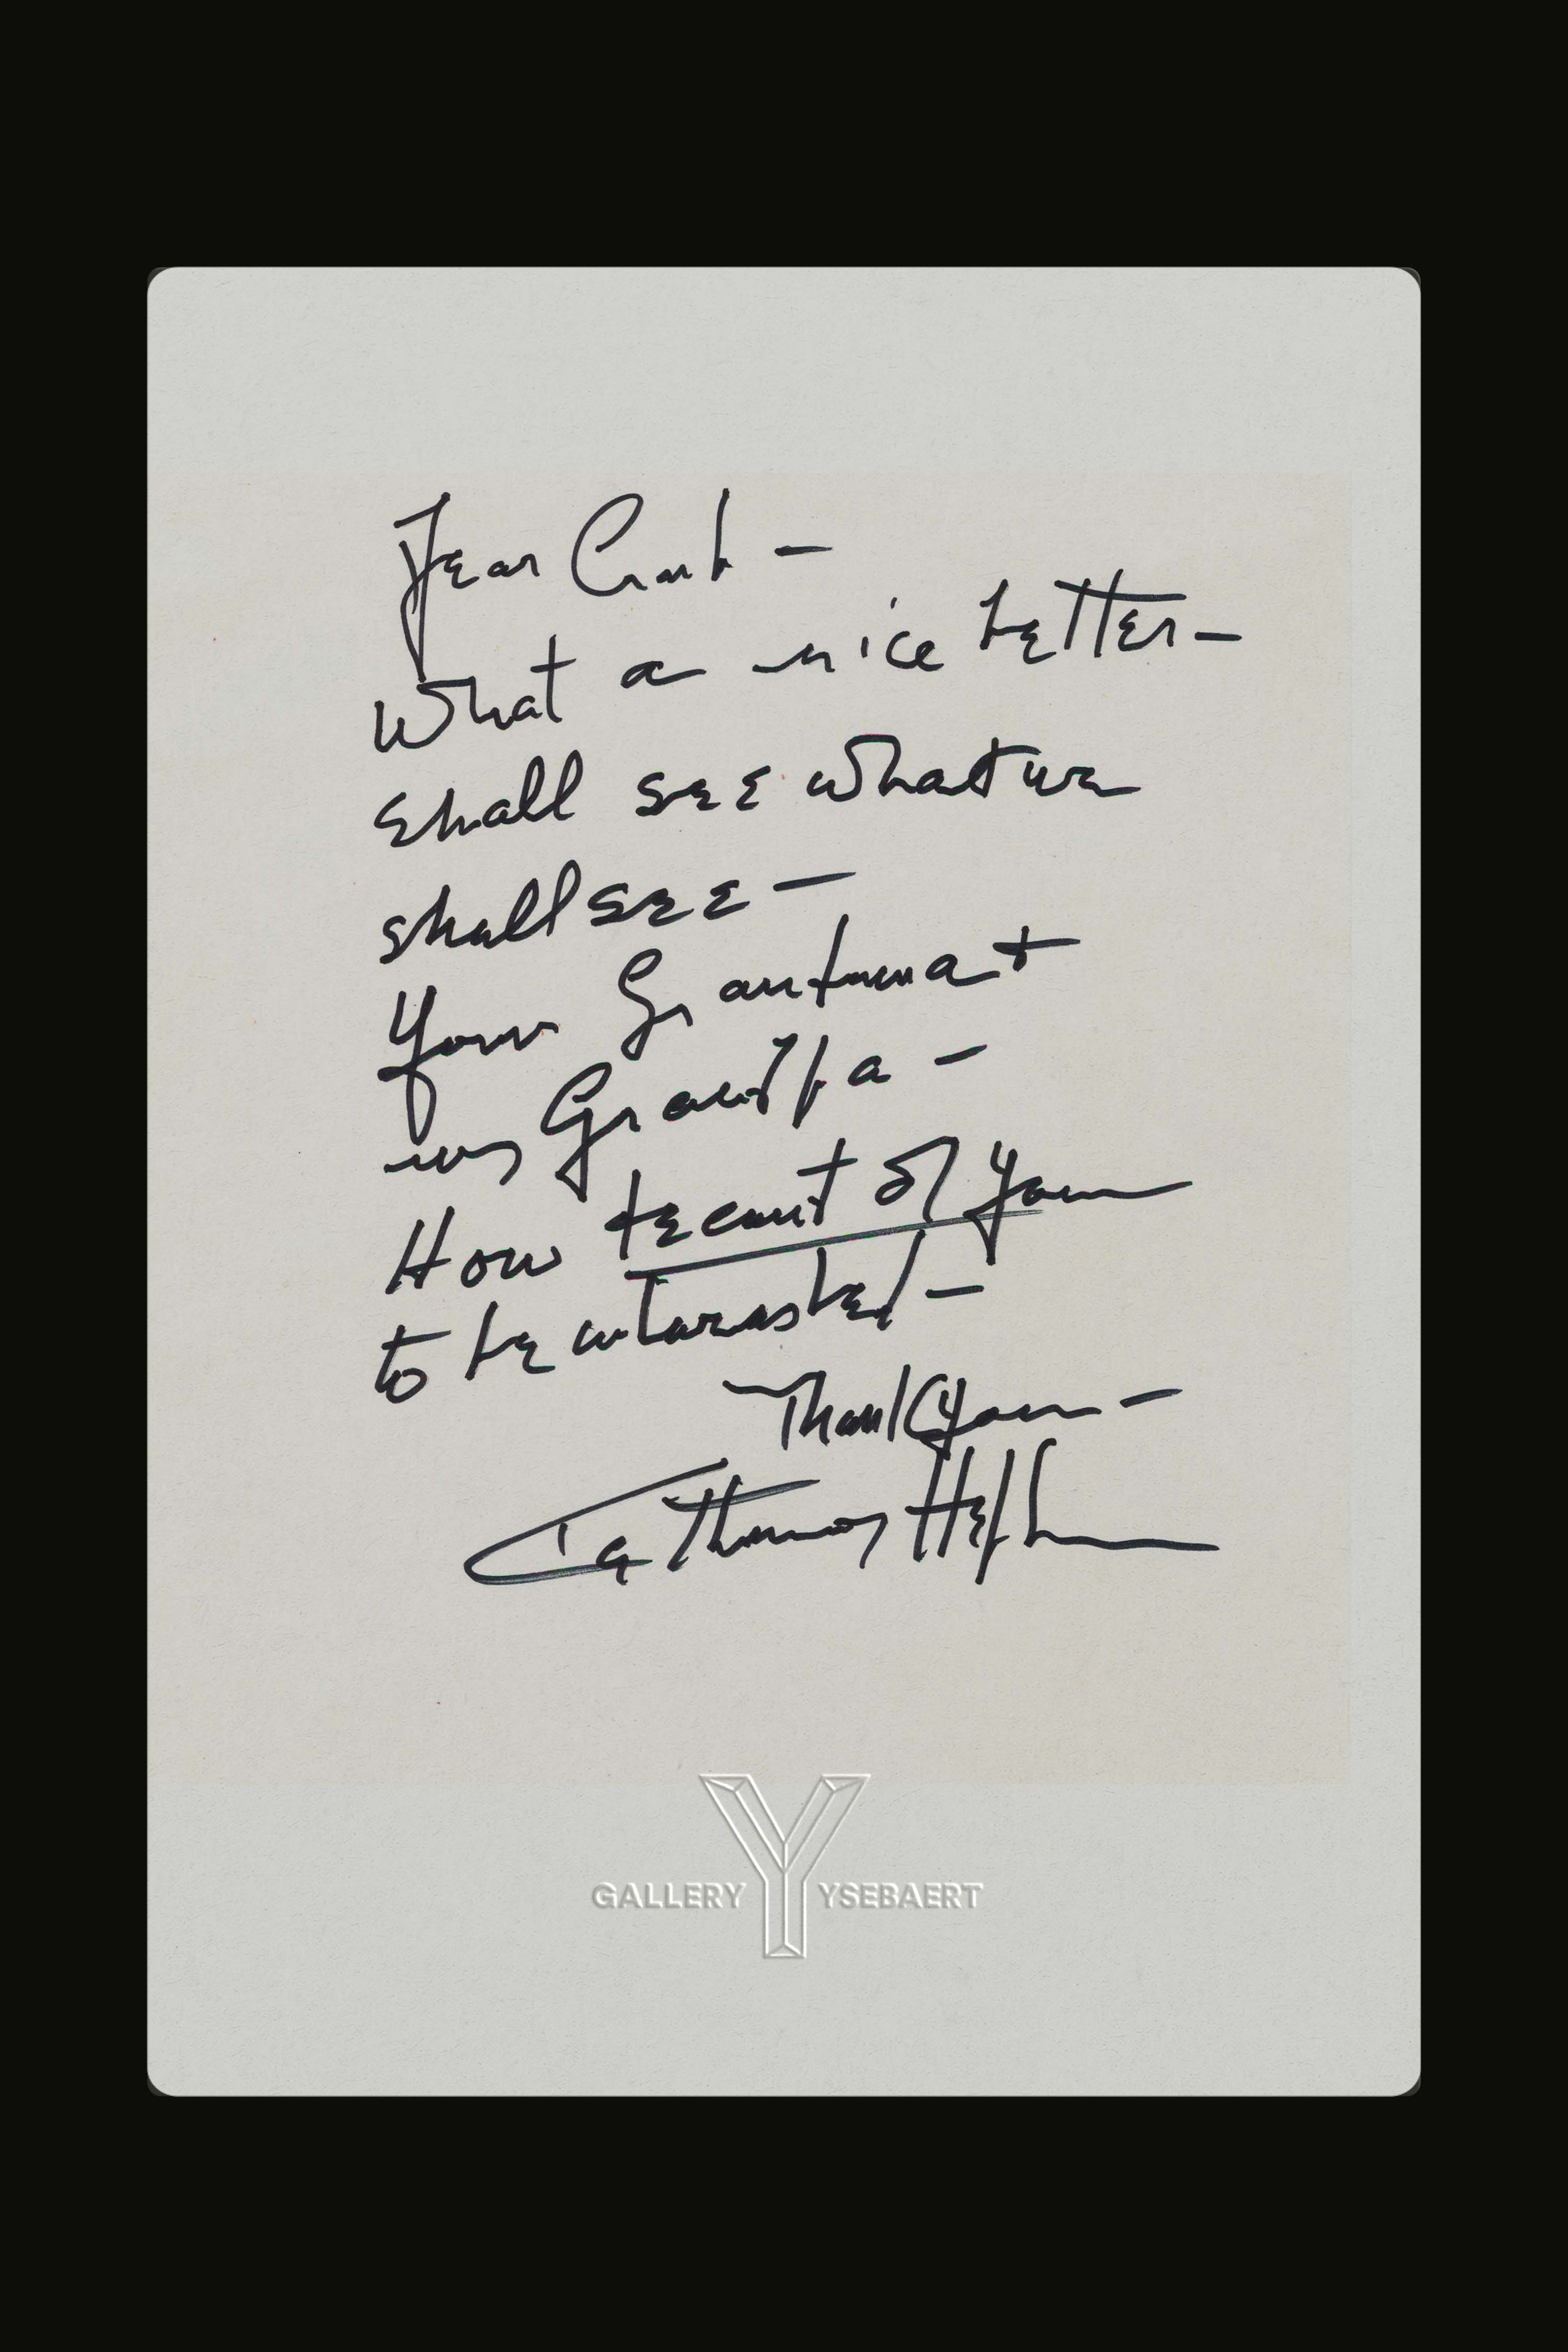 Dear
What a nice letter—
shall see what we
shall see—
Your Grandma +
my Grandpa—
How decent of you
to be interested—
Thank you—
Katharine Hepburn
GALLERY Y YSEBAERT